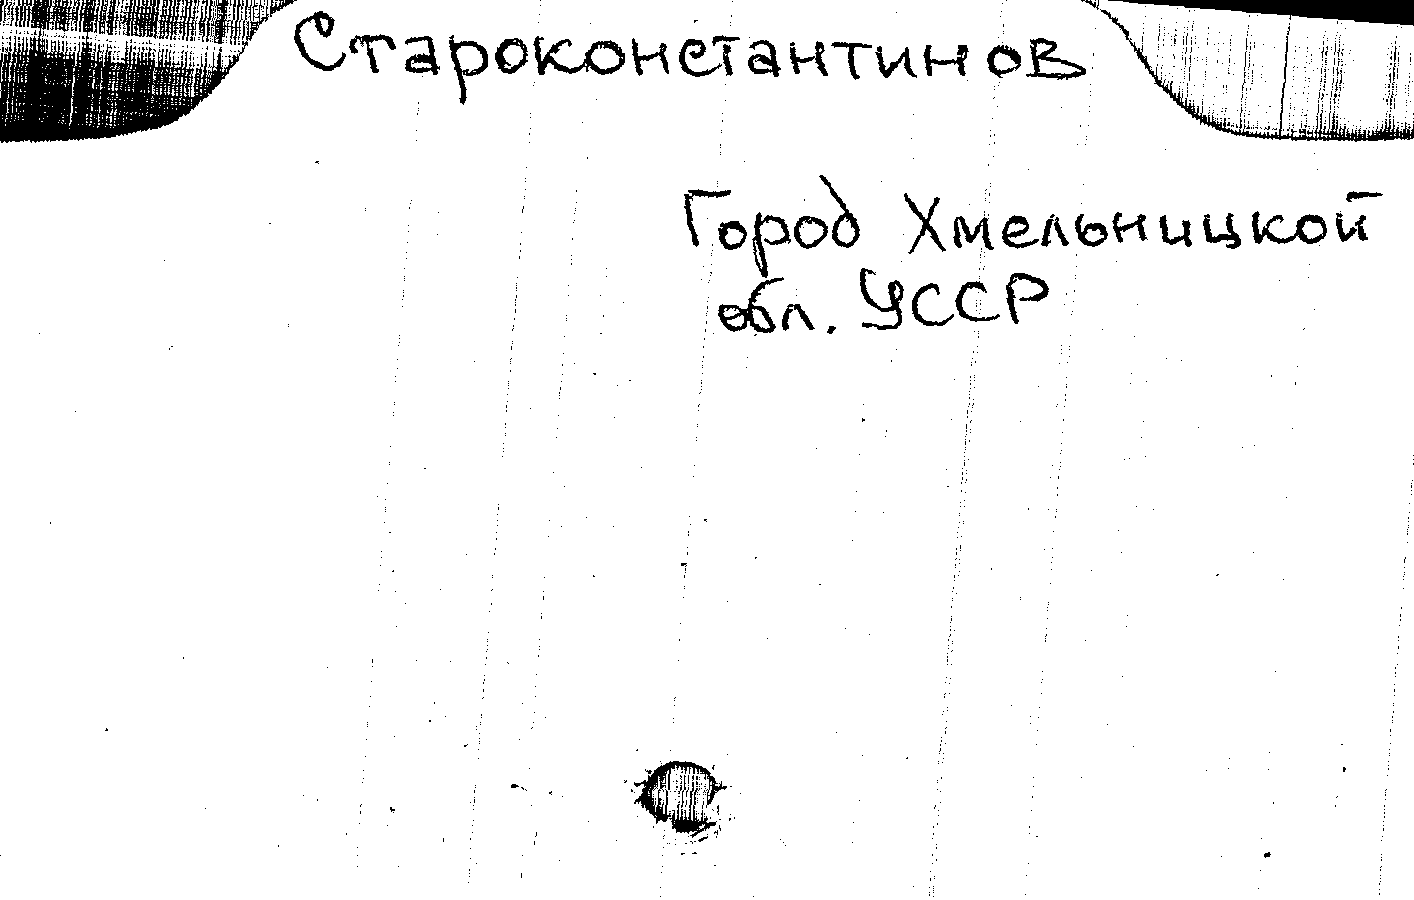 Староконстантинов
Город Хмельницкой
обл. УССР